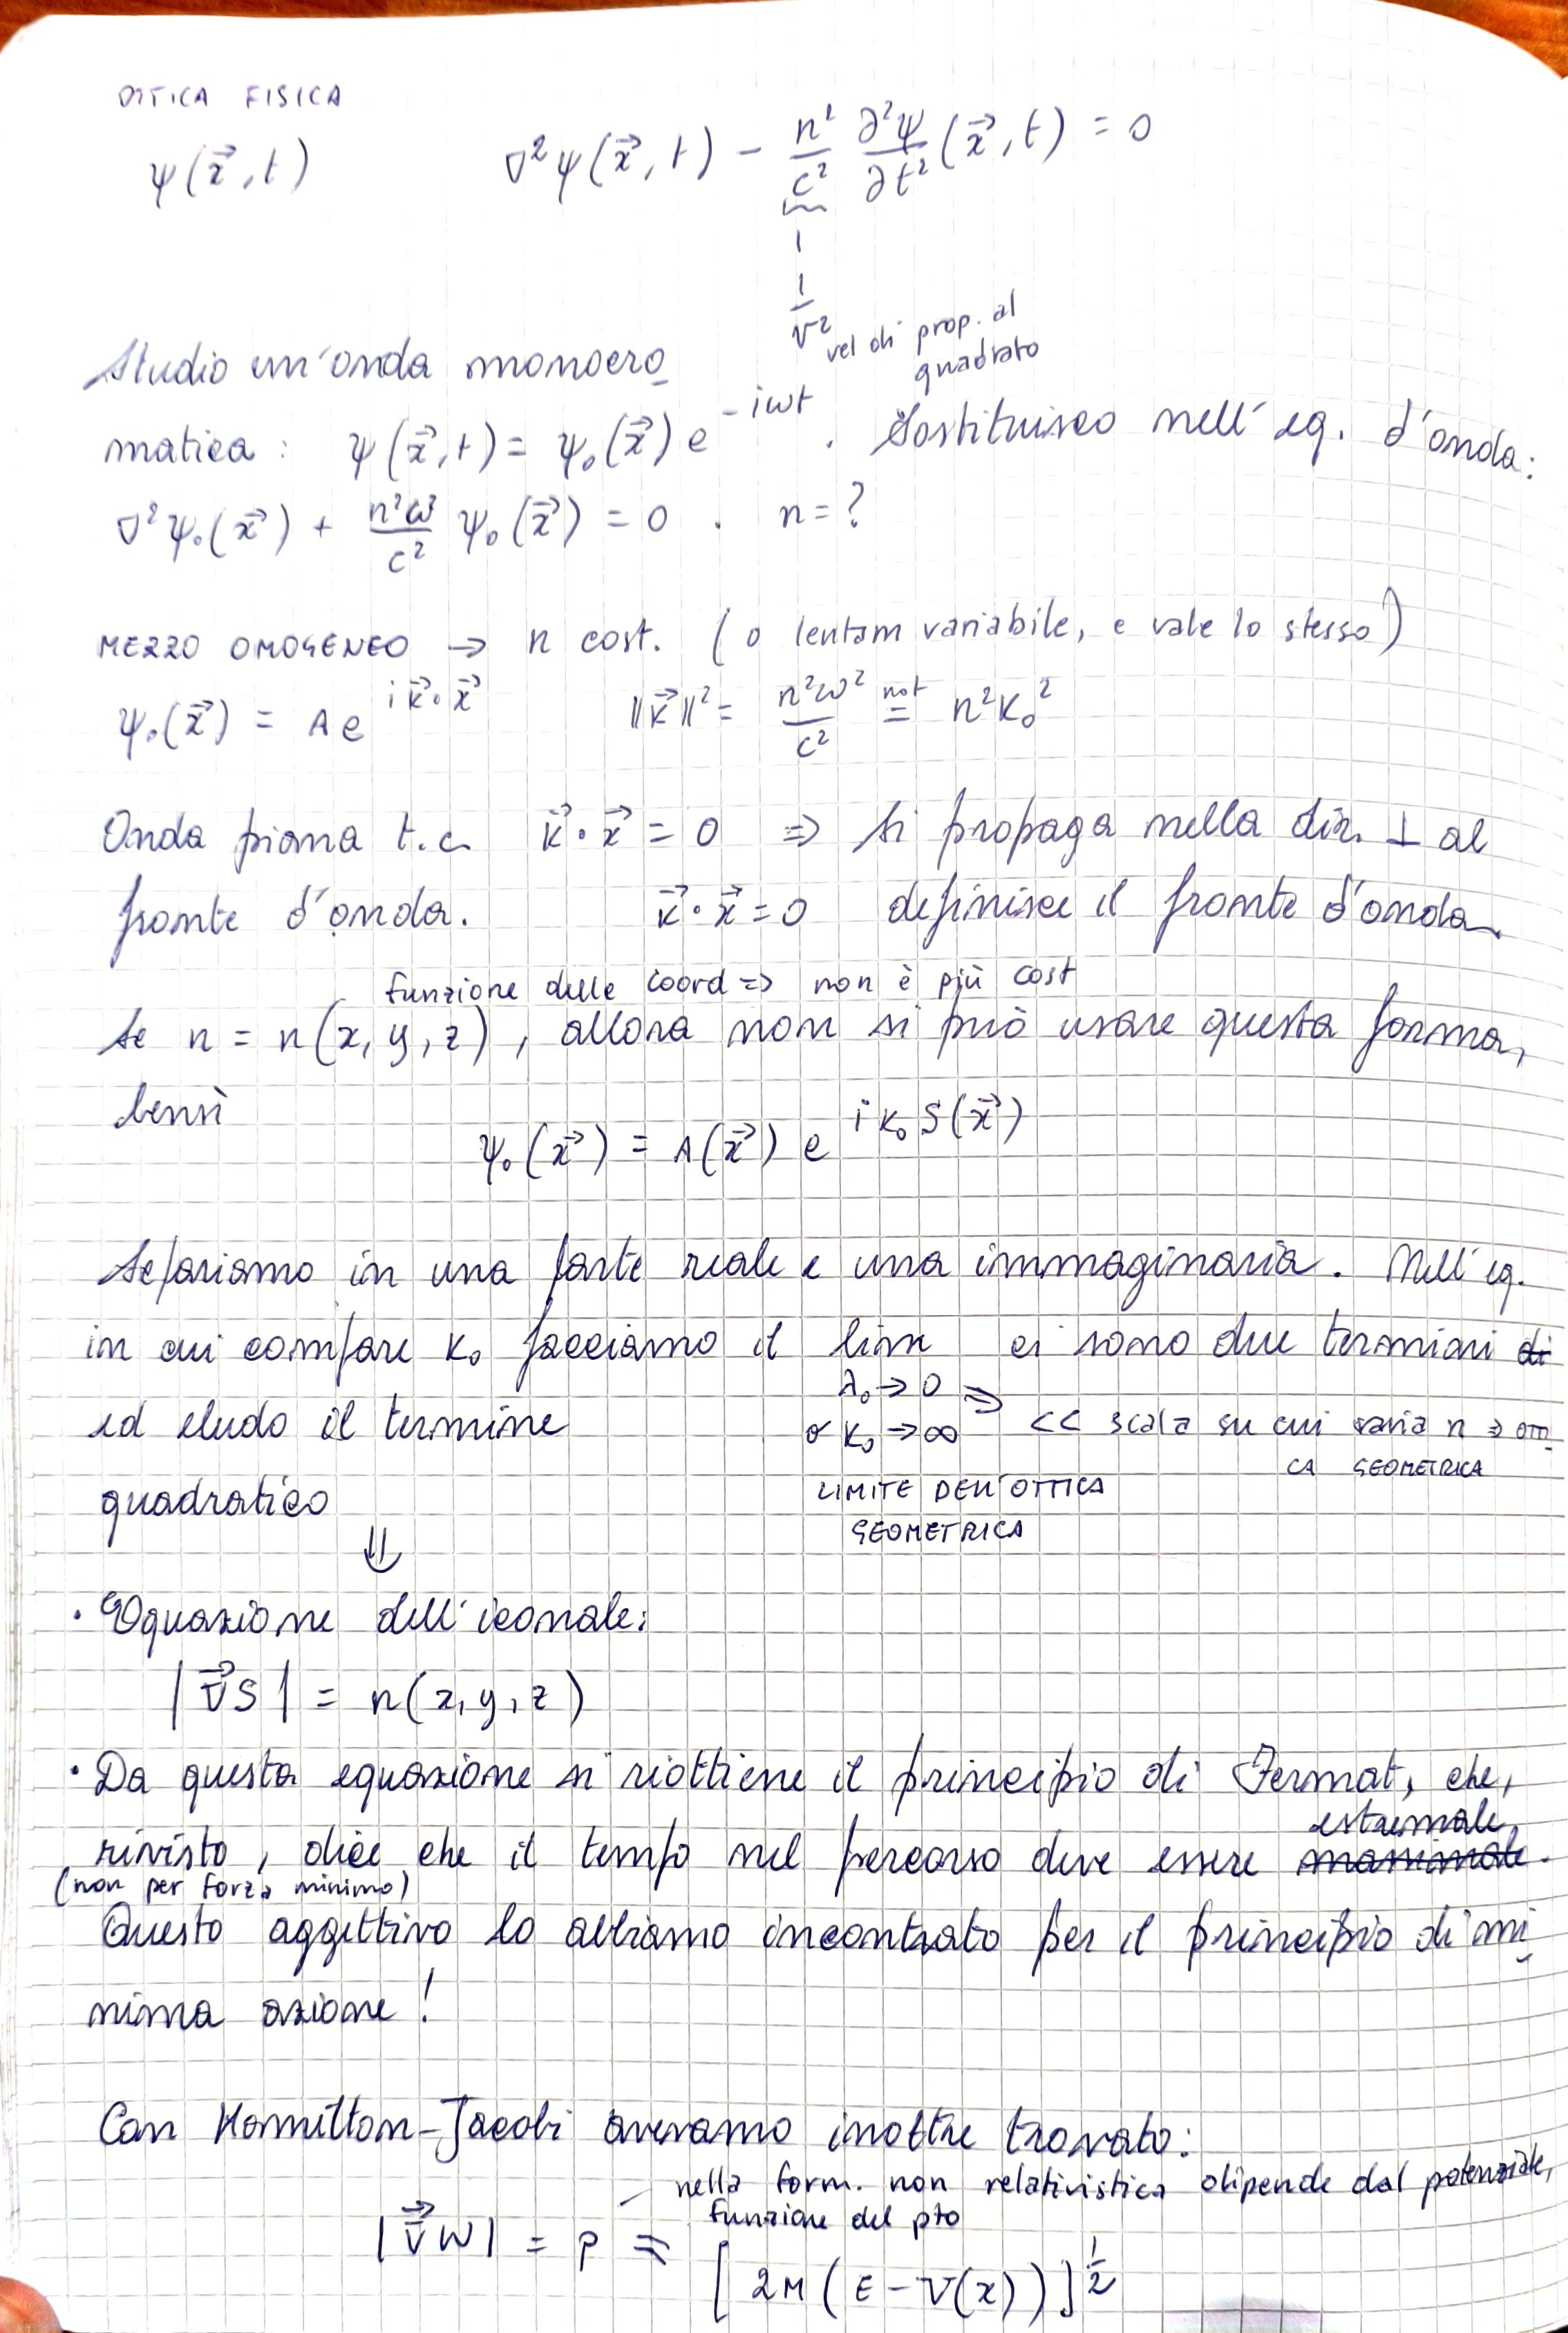 OTTICA FISICA
ψ(x⃗,t)    ∇²ψ(x⃗,t) − n²/c² ∂²ψ/∂t² (x⃗,t) = 0
1/v² vel di prop. al
quadrato
Studio un'onda monocro
matica: ψ(x⃗,t) = ψ₀(x⃗) e^{-iωt}. Sostituisco nell'eq. d'onda:
∇²ψ₀(x⃗) + n²ω²/c² ψ₀(x⃗) = 0 . n = ?
MEZZO OMOGENEO → n cost. (o lentam variabile, e vale lo stesso)
ψ₀(x⃗) = A e^{i k⃗·x⃗}    ||k⃗||² = n²ω²/c² not= n²k₀²
Onda piana t.c. k⃗·x⃗ = 0 ⇒ si propaga nella dir. ⊥ al
fronte d'onda. k⃗·x⃗ = 0 definisce il fronte d'onda.
funzione delle coord ⇒ non è più cost
Se n = n(x,y,z), allora non si può usare questa forma,
bensì
ψ₀(x⃗) = A(x⃗) e^{i k₀ S(x⃗)}
Separiamo in una parte reale e una immaginaria. Nell'eq.
in cui compare k₀ facciamo il lim ci sono due termini di
λ₀→0 ⇒
ed eludo il termine o k₀→∞ << scala su cui varia n ⇒ OTTI
CA GEOMETRICA
quadratico LIMITE DELL'OTTICA
GEOMETRICA
⇓
• Equazione dell'iconale:
|∇⃗S| = n(x,y,z)
• Da questa equazione si riottiene il principio di Fermat, che,
estremale
rivisto, dice che il tempo nel percorso deve essere massimale.
(non per forza minimo)
Questo aggettivo lo abbiamo incontrato per il principio di mi
nima azione!
Con Hamilton-Jacobi avevamo inoltre trovato:
nella form. non relativistica dipende dal potenziale,
funzione del pto
|∇⃗W| = p = [2M(E−V(x))]^{1/2}